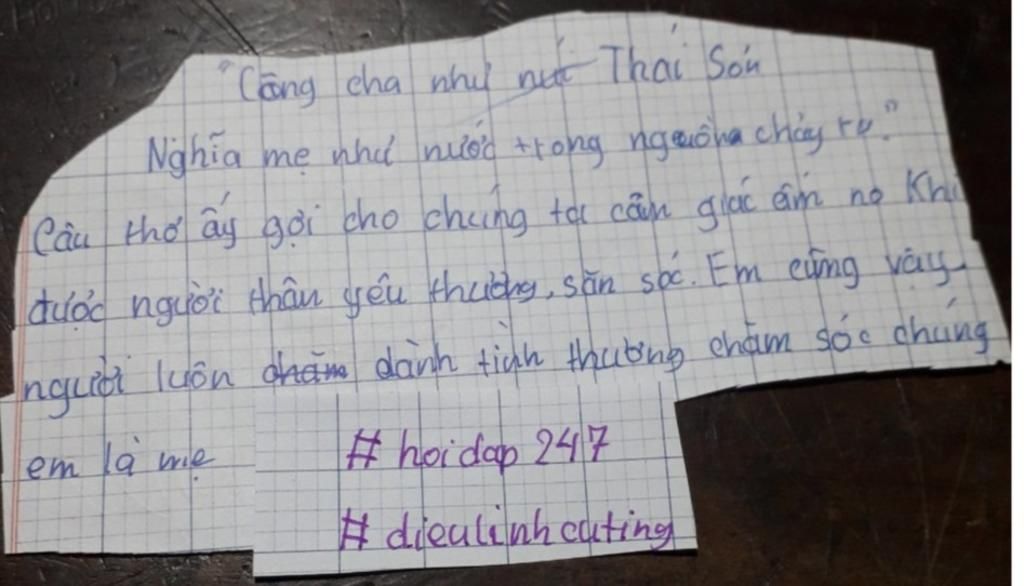 "Công cha như núi Thái Sơn
Nghĩa mẹ như nước trong nguồn chảy ra."
Câu thơ ấy gợi cho chúng ta cảm giác ấm no khi
được người thân yêu thương, săn sóc. Em cũng vậy
người luôn chăm dành tình thương chăm sóc chúng
em là mẹ
# hoidap 247
# dieulinhcuting